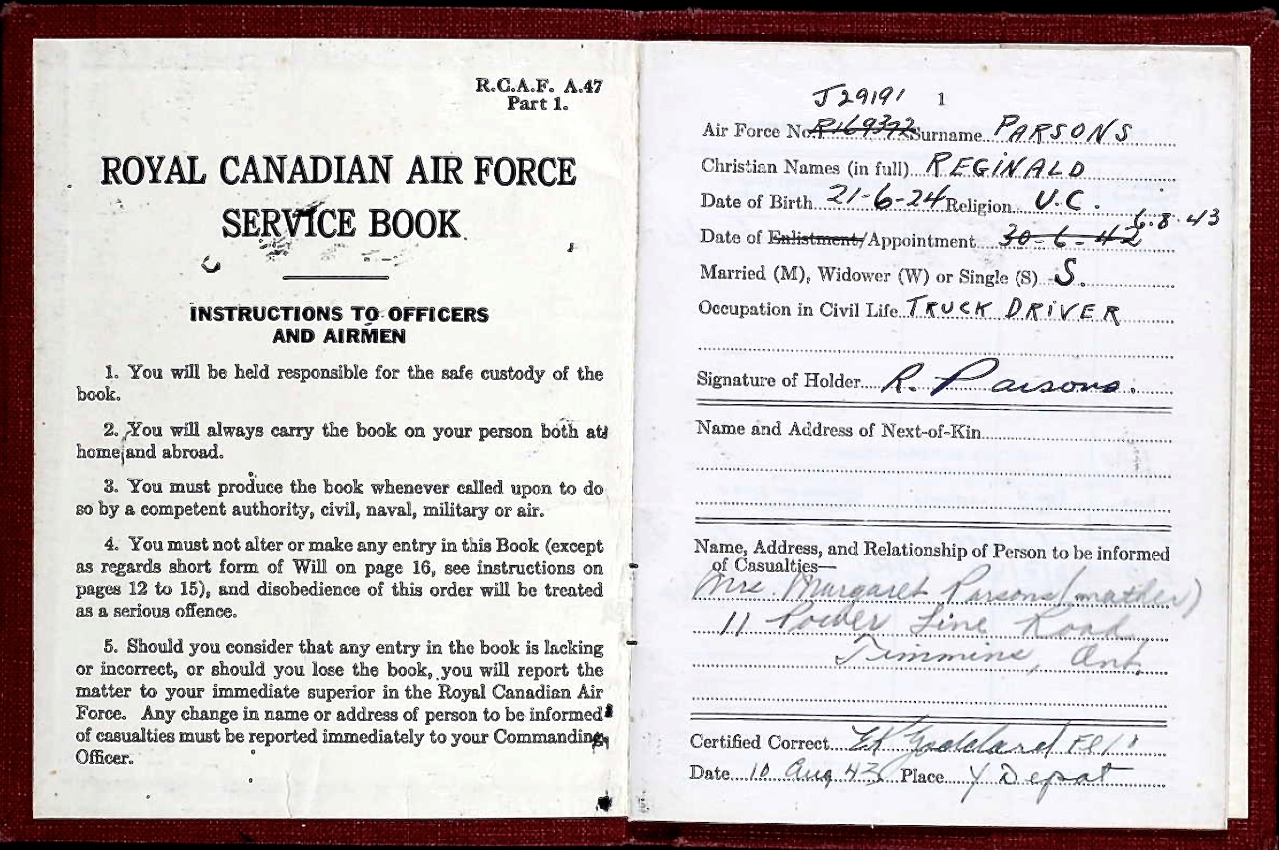 R.C.A.F. A.47
Part 1.
ROYAL CANADIAN AIR FORCE
SERVICE BOOK
INSTRUCTIONS TO OFFICERS
AND AIRMEN
1. You will be held responsible for the safe custody of the
book.
2. You will always carry the book on your person both at
home and abroad.
3. You must produce the book whenever called upon to do
so by a competent authority, civil, naval, military or air.
4. You must not alter or make any entry in this Book (except
as regards short form of Will on page 16, see instructions on
pages 12 to 15), and disobedience of this order will be treated
as a serious offence.
5. Should you consider that any entry in the book is lacking
or incorrect, or should you lose the book, you will report the
matter to your immediate superior in the Royal Canadian Air
Force. Any change in name or address of person to be informed
of casualties must be reported immediately to your Commanding
Officer.
J29191 1
Air Force No. R169392 Surname PARSONS
Christian Names (in full) REGINALD
Date of Birth 21-6-24 Religion U.C.
6.8.43
Date of Enlistment/Appointment 30-6-42
Married (M), Widower (W) or Single (S) S.
Occupation in Civil Life TRUCK DRIVER
Signature of Holder R. Parsons.
Name and Address of Next-of-Kin
Name, Address, and Relationship of Person to be informed
of Casualties—
Mrs. Margaret Parsons (mother)
11 Power Line Road
Timmins, Ont.
Certified Correct Goddard F/O
Date 10 Aug 43 Place Y Depot